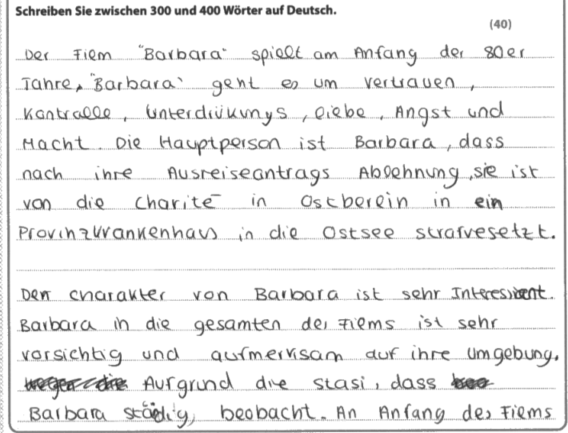 Schreiben Sie zwischen 300 und 400 Wörter auf Deutsch.
(40)
Der Film "Barbara" spielt am Anfang der 80er
Jahre, "Barbara" geht es um vertrauen,
Kontrolle, Unterdrükungs, liebe, Angst und
Macht. Die Hauptperson ist Barbara, dass
nach ihre Ausreiseantrags Ablehnung, sie ist
von die Charité in Ostberein in ein
Provinzkrankenhaus in die Ostsee strafvesetzt.
Den charakter von Barbara ist sehr Interessent.
Barbara in die gesamten des Films ist sehr
vorsichtig und aufmerksam auf ihre umgebung.
Aufgrund die stasi, dass
Barbara städig, beobacht. An Anfang des Films